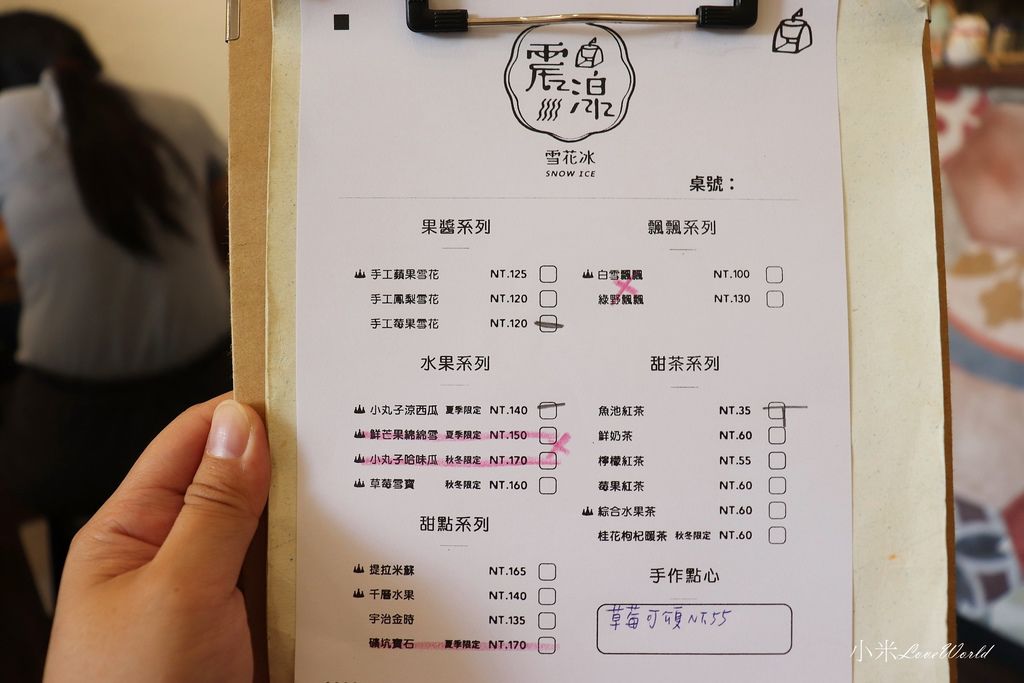 震泉
雪花冰
SNOW ICE
桌號：
果醬系列
手工蘋果雪花 NT.125
手工鳳梨雪花 NT.120
手工莓果雪花 NT.120
水果系列
小丸子涼西瓜 夏季限定 NT.140
鮮芒果綿綿雪 夏季限定 NT.150
小丸子哈味瓜 秋冬限定 NT.170
草莓雪寶 秋冬限定 NT.160
甜點系列
提拉米蘇 NT.165
千層水果 NT.140
宇治金時 NT.135
礦坑寶石 夏季限定 NT.170
飄飄系列
白雪飄飄 NT.100
綠野飄飄 NT.130
甜茶系列
魚池紅茶 NT.35
鮮奶茶 NT.60
檸檬紅茶 NT.55
莓果紅茶 NT.60
綜合水果茶 NT.60
桂花枸杞暖茶 秋冬限定 NT.60
手作點心
草莓可頌 NT.55
小米LoveWorld